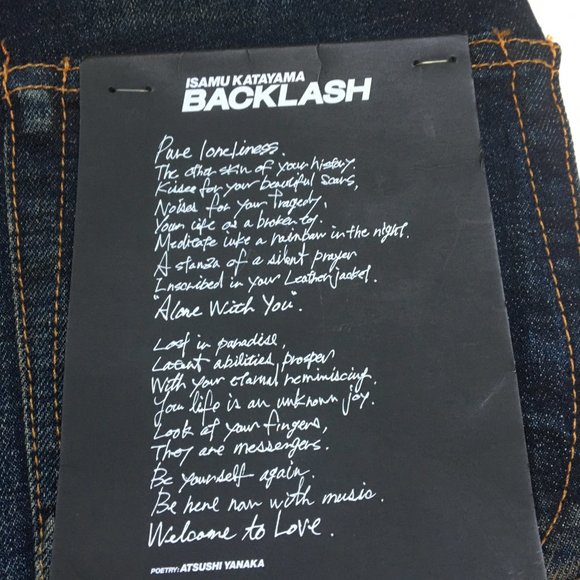 ISAMU KATAYAMA
BACKLASH
Pure loneliness.
The other skin of your history.
Kisses for your beautiful scars,
Noises for your tragedy,
Your life as a broken toy.
Meditate like a rainbow in the night.
A stanza of a silent prayer
Inscribed in your Leather jacket.
"Alone With You".
Lost in paradise,
Latent abilities, prosper
With your eternal reminiscing.
You life is an unknown joy.
Look at your fingers,
They are messengers.
Be yourself again.
Be here now with music.
Welcome to Love.
POETRY: ATSUSHI YANAKA